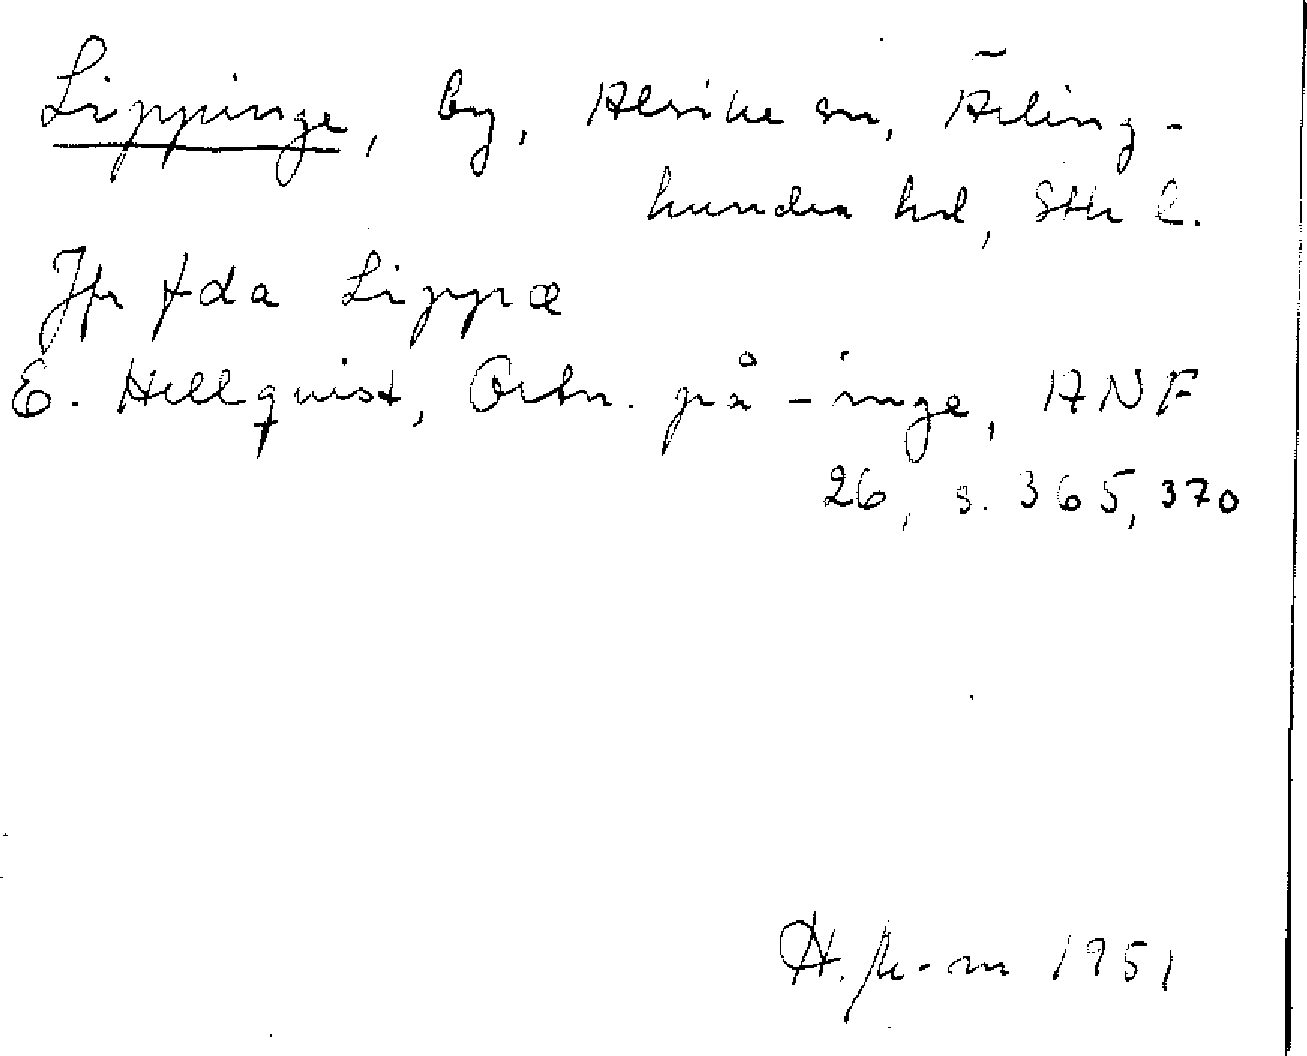 Lippinge, by, Alsike sn, Ärling-
hundra hd, Sth l.
Jfr fda Lippæ
E. Hellquist, Ortn. på -inge, ANF
26, s. 365, 370
1951